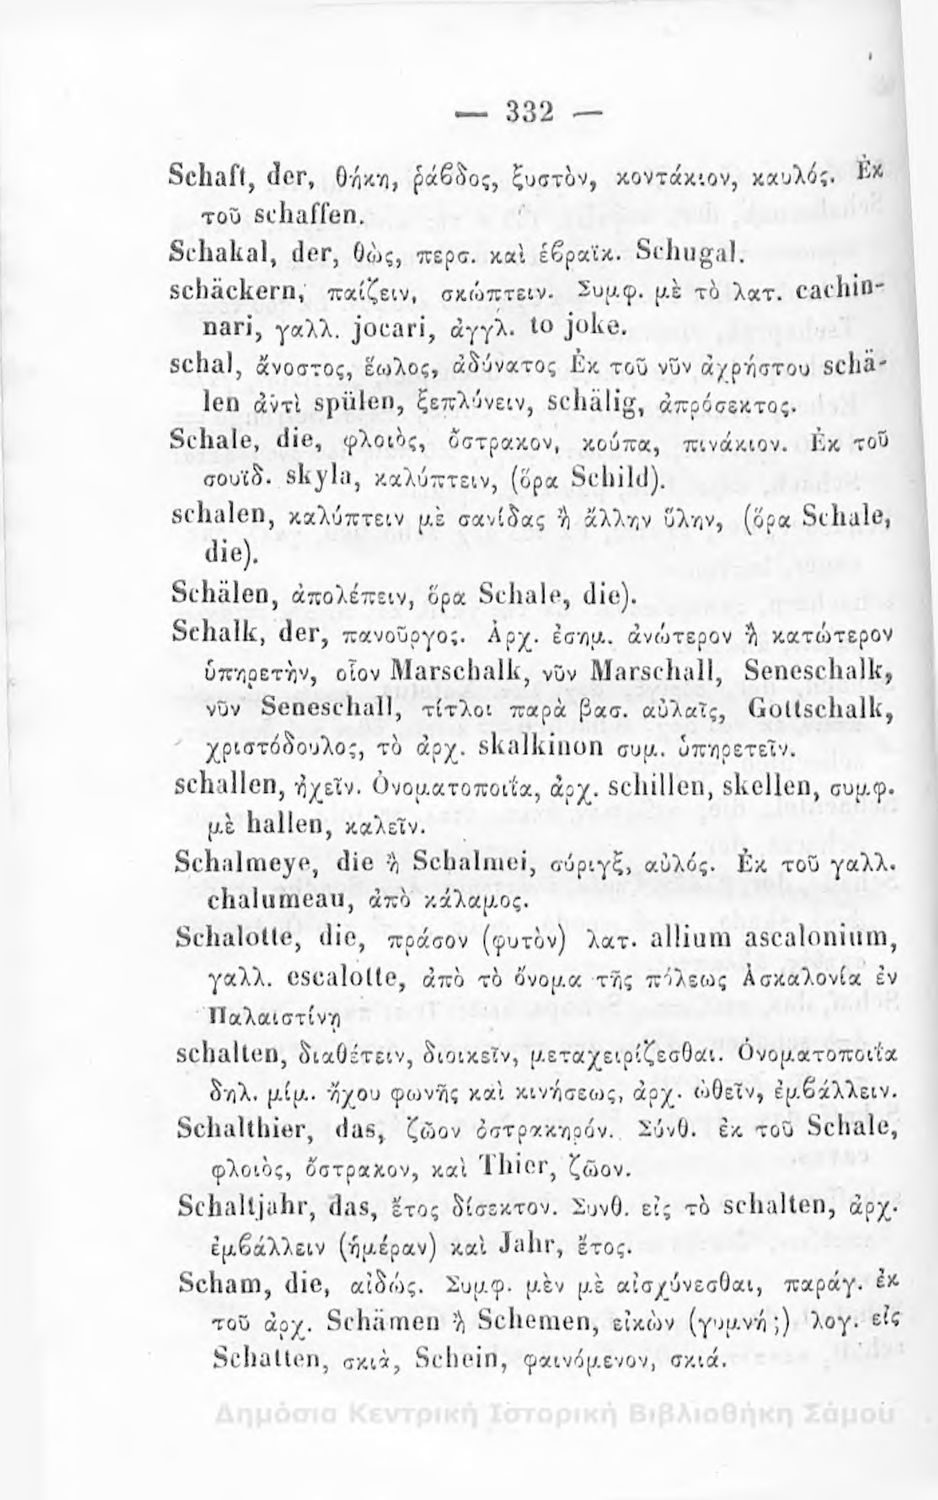 — 332 —
Schaft, der, θήκη, ῥάβδος, ξυστὸν, κοντάκιον, καυλός. Ἐκ
τοῦ schaffen.
Schakal, der, θὼς, περσ. καὶ ἑβραϊκ. Schugal.
schäckern, παίζειν, σκώπτειν. Συμφ. μὲ τὸ λατ. cachin-
nari, γαλλ. jocari, ἀγγλ. to joke.
schal, ἄνοστος, ἕωλος, ἀδύνατος Ἐκ τοῦ νῦν ἀχρήστου schä-
len ἀντὶ spülen, ξεπλύνειν, schälig, ἀπρόσεκτος.
Schale, die, φλοιὸς, ὄστρακον, κούπα, πινάκιον. Ἐκ τοῦ
σουϊδ. skyla, καλύπτειν, (ὅρα Schild).
schalen, καλύπτειν μὲ σανίδας ἢ ἄλλην ὕλην, (ὅρα Schale,
die).
Schälen, ἀπολέπειν, ὅρα Schale, die).
Schalk, der, πανοῦργος. Ἀρχ. ἐσημ. ἀνώτερον ἢ κατώτερον
ὑπηρετὴν, οἷον Marschalk, νῦν Marschall, Seneschalk,
νῦν Seneschall, τίτλοι παρὰ βασ. αὐλαῖς, Gottschalk,
χριστόδουλος, τὸ ἀρχ. skalkinon συμ. ὑπηρετεῖν.
schallen, ἠχεῖν. Ὀνοματοποιΐα, ἀρχ. schillen, skellen, συμφ.
μὲ hallen, καλεῖν.
Schalmeye, die ἢ Schalmei, σύριγξ, αὐλός. Ἐκ τοῦ γαλλ.
chalumeau, ἀπὸ κάλαμος.
Schalotte, die, πράσον (φυτὸν) λατ. allium ascalonium,
γαλλ. escalotte, ἀπὸ τὸ ὄνομα τῆς πόλεως Ἀσκαλονία ἐν
Παλαιστίνῃ
schalten, διαθέτειν, διοικεῖν, μεταχειρίζεσθαι. Ὀνοματοποιΐα
δηλ. μίμ. ἤχου φωνῆς καὶ κινήσεως, ἀρχ. ὠθεῖν, ἐμβάλλειν.
Schalthier, das, ζῶον ὀστρακηρόν. Σύνθ. ἐκ τοῦ Schale,
φλοιὸς, ὄστρακον, καὶ Thier, ζῶον.
Schaltjahr, das, ἔτος δίσεκτον. Συνθ. εἰς τὸ schalten, ἀρχ.
ἐμβάλλειν (ἡμέραν) καὶ Jahr, ἔτος.
Scham, die, αἰδώς. Συμφ. μὲν μὲ αἰσχύνεσθαι, παράγ. ἐκ
τοῦ ἀρχ. Schämen ἢ Schemen, εἰκὼν (γυμνή;) λογ. εἰς
Schatten, σκιὰ, Schein, φαινόμενον, σκιά.
Δημόσια Κεντρική Ιστορική Βιβλιοθήκη Σάμου